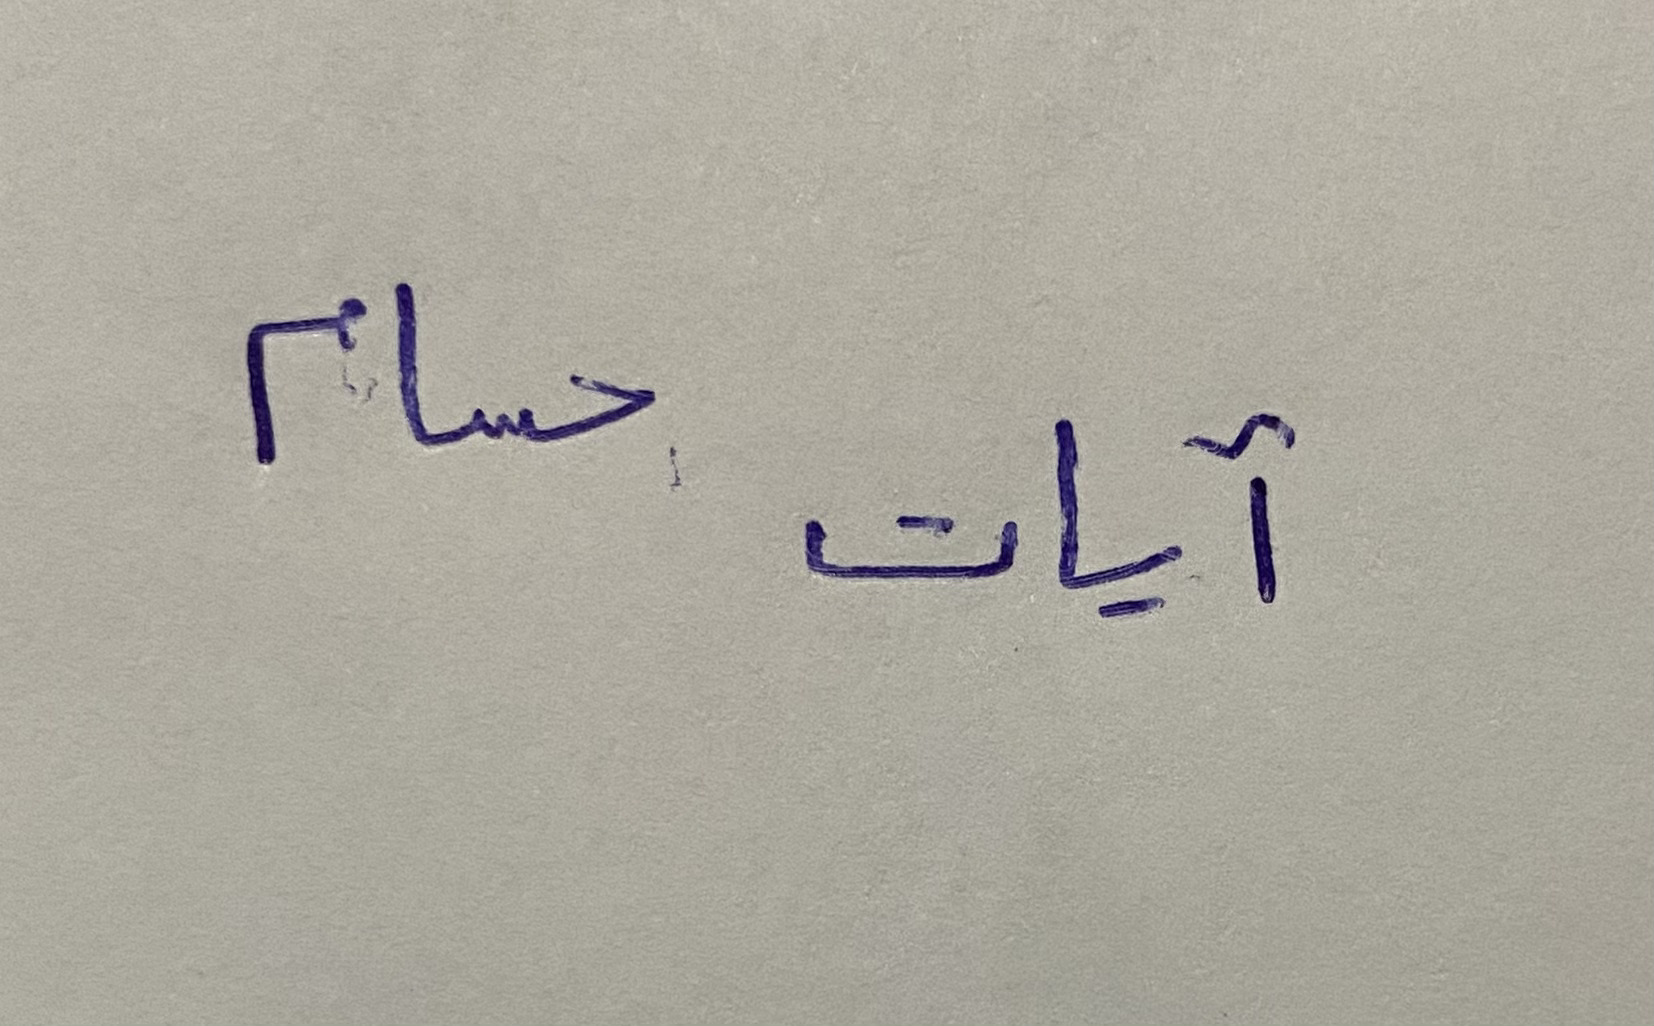 آيات
حسام